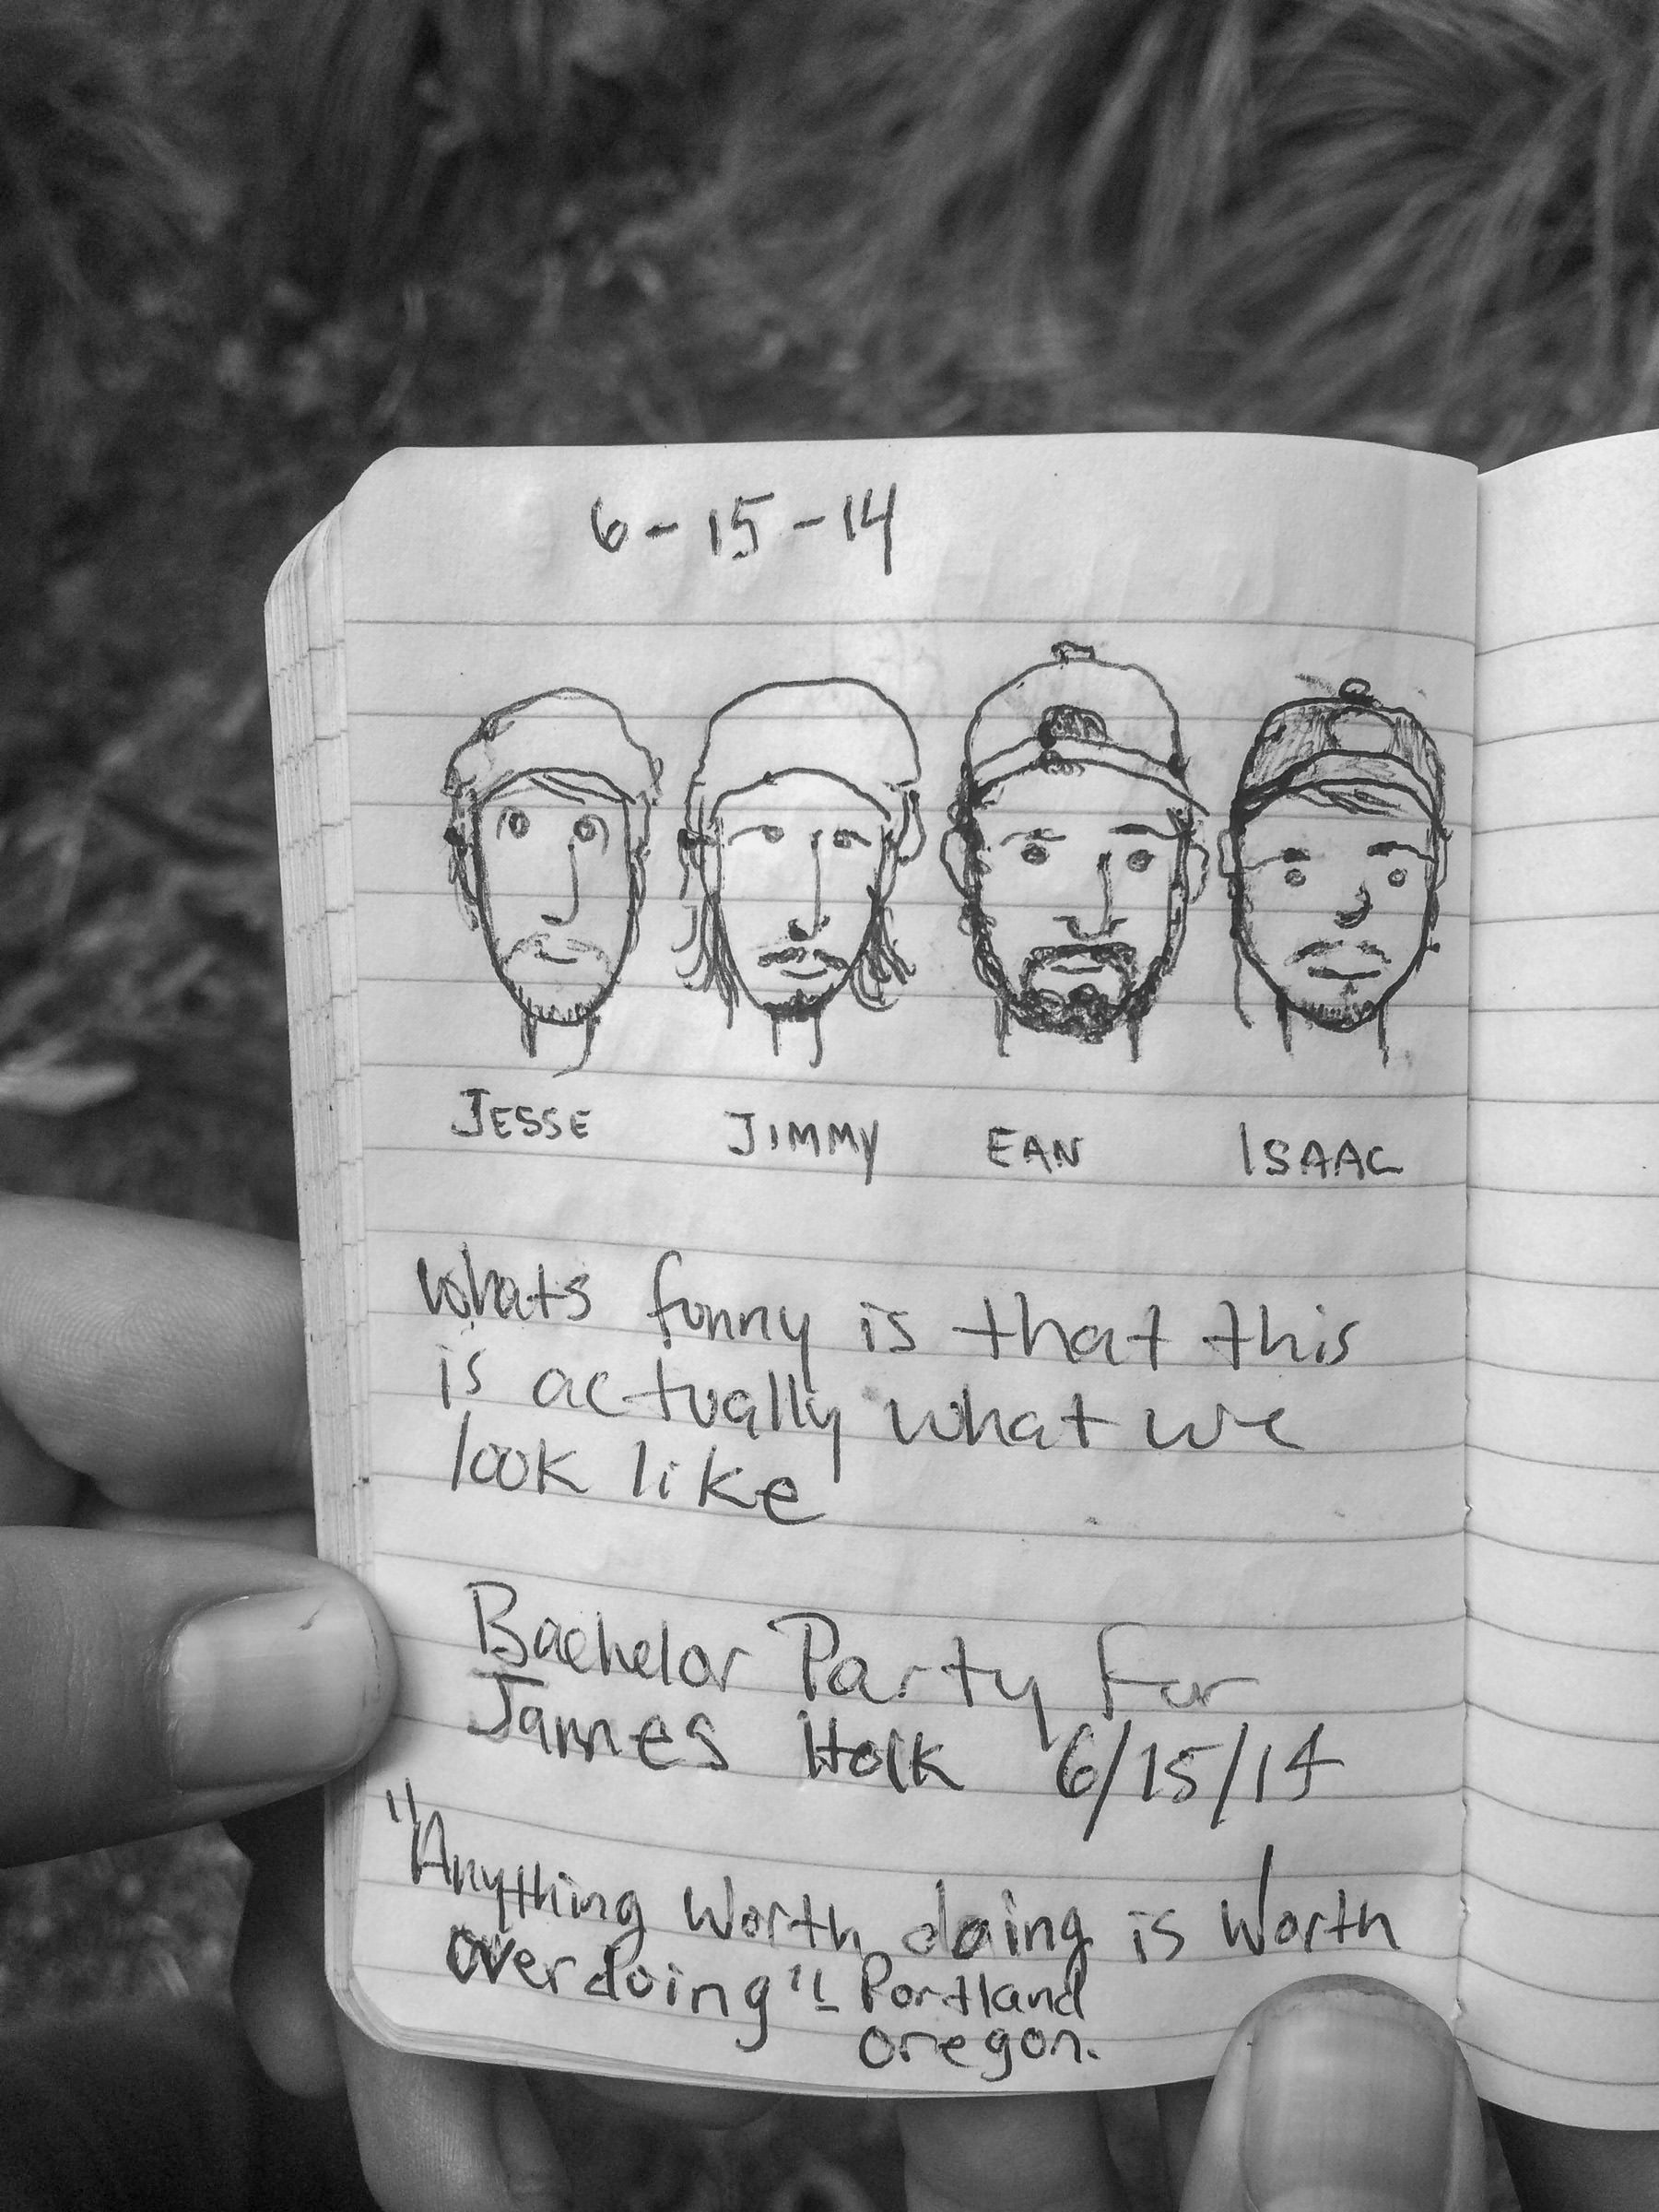 6-15-14
JESSE JIMMY EAN ISAAC
whats funny is that this
is actually what we
look like
Bachelor Party For
James Holk 6/15/14
"Anything Worth doing is Worth
overdoing" - Portland
oregon.